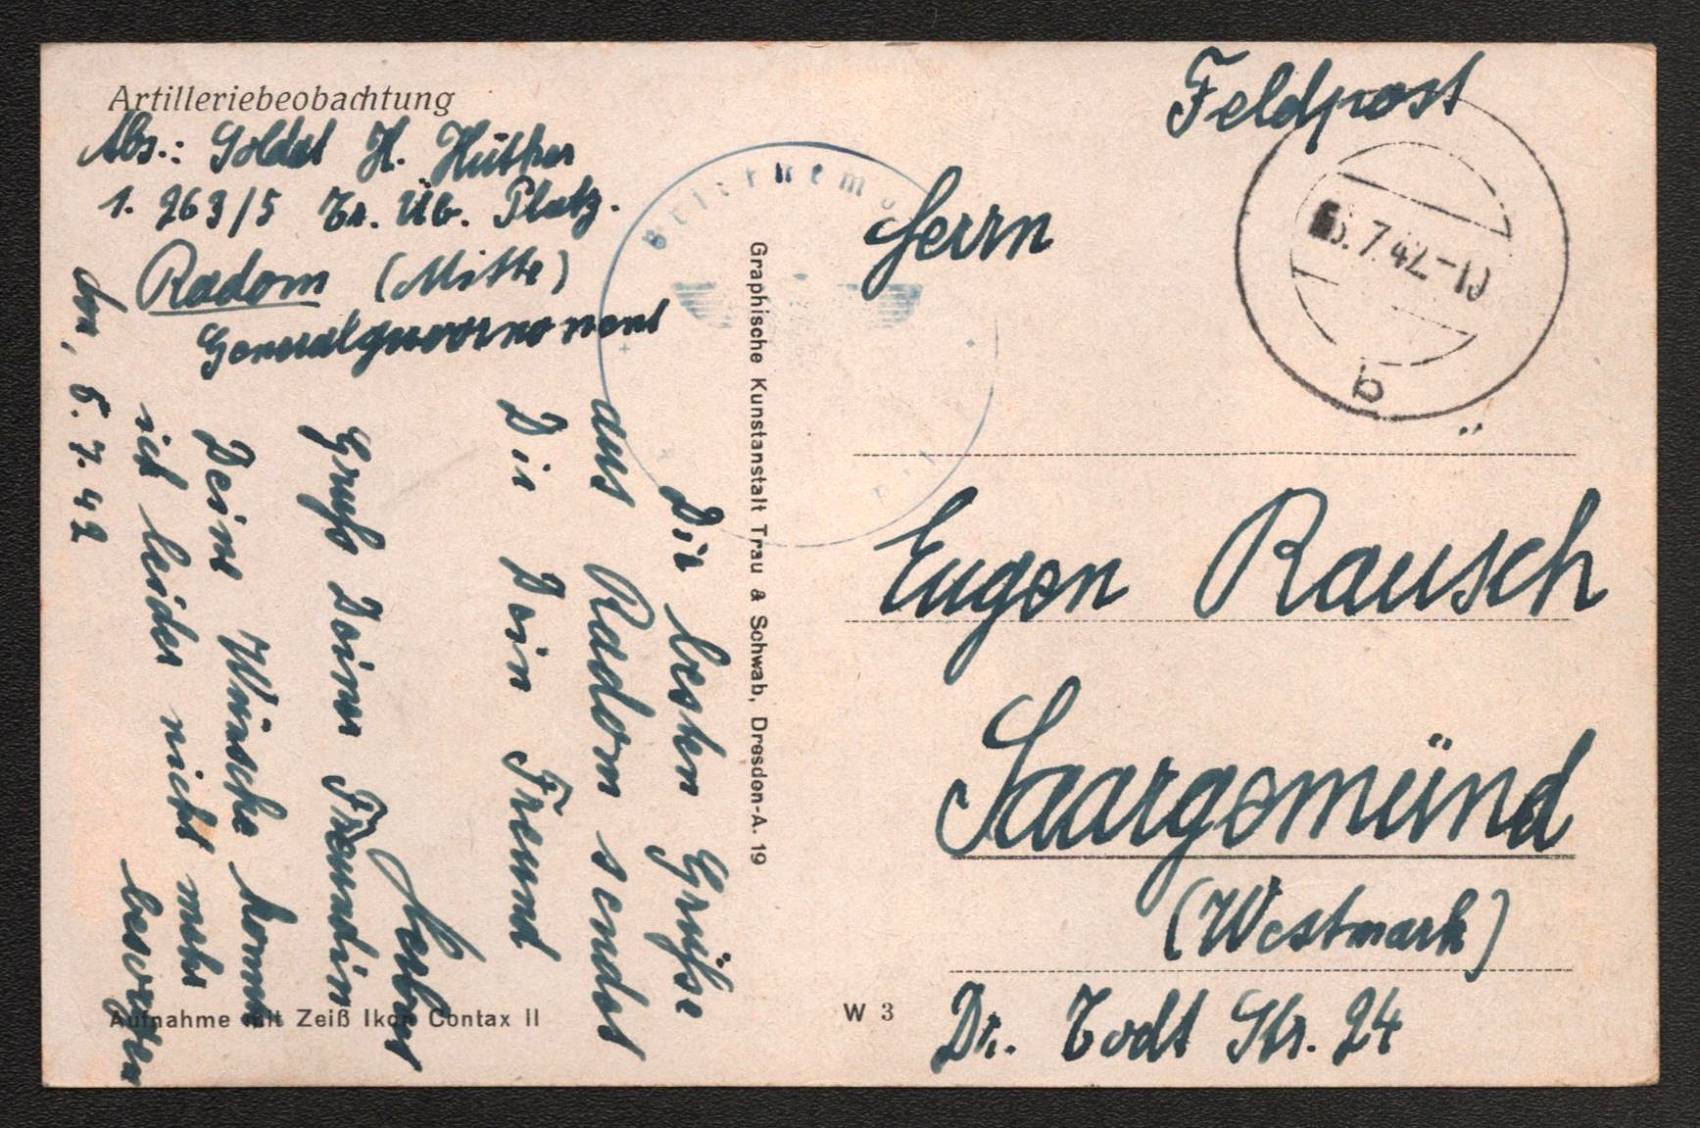 Artilleriebeobachtung
Abs.: Soldat H. Hüther
1. 263/5 Tr. Üb. Platz.
Radom (Mitte)
Generalgouvernement
Feldpost
6.7.42-19
b
Herrn
Eugen Rausch
Saargemünd
(Westmark)
Dr. Todt Str. 24
Die besten Grüsse
aus Radom sendet
Dir Dein Freund
Herbert
Gruß Deiner Freundin
Deine Wünsche kann
ich leider nicht mehr
besorgen
den, 6.7.42
Briefstem
Graphische Kunstanstalt Trau & Schwab, Dresden-A. 19
Aufnahme mit Zeiß Ikon Contax II
W 3